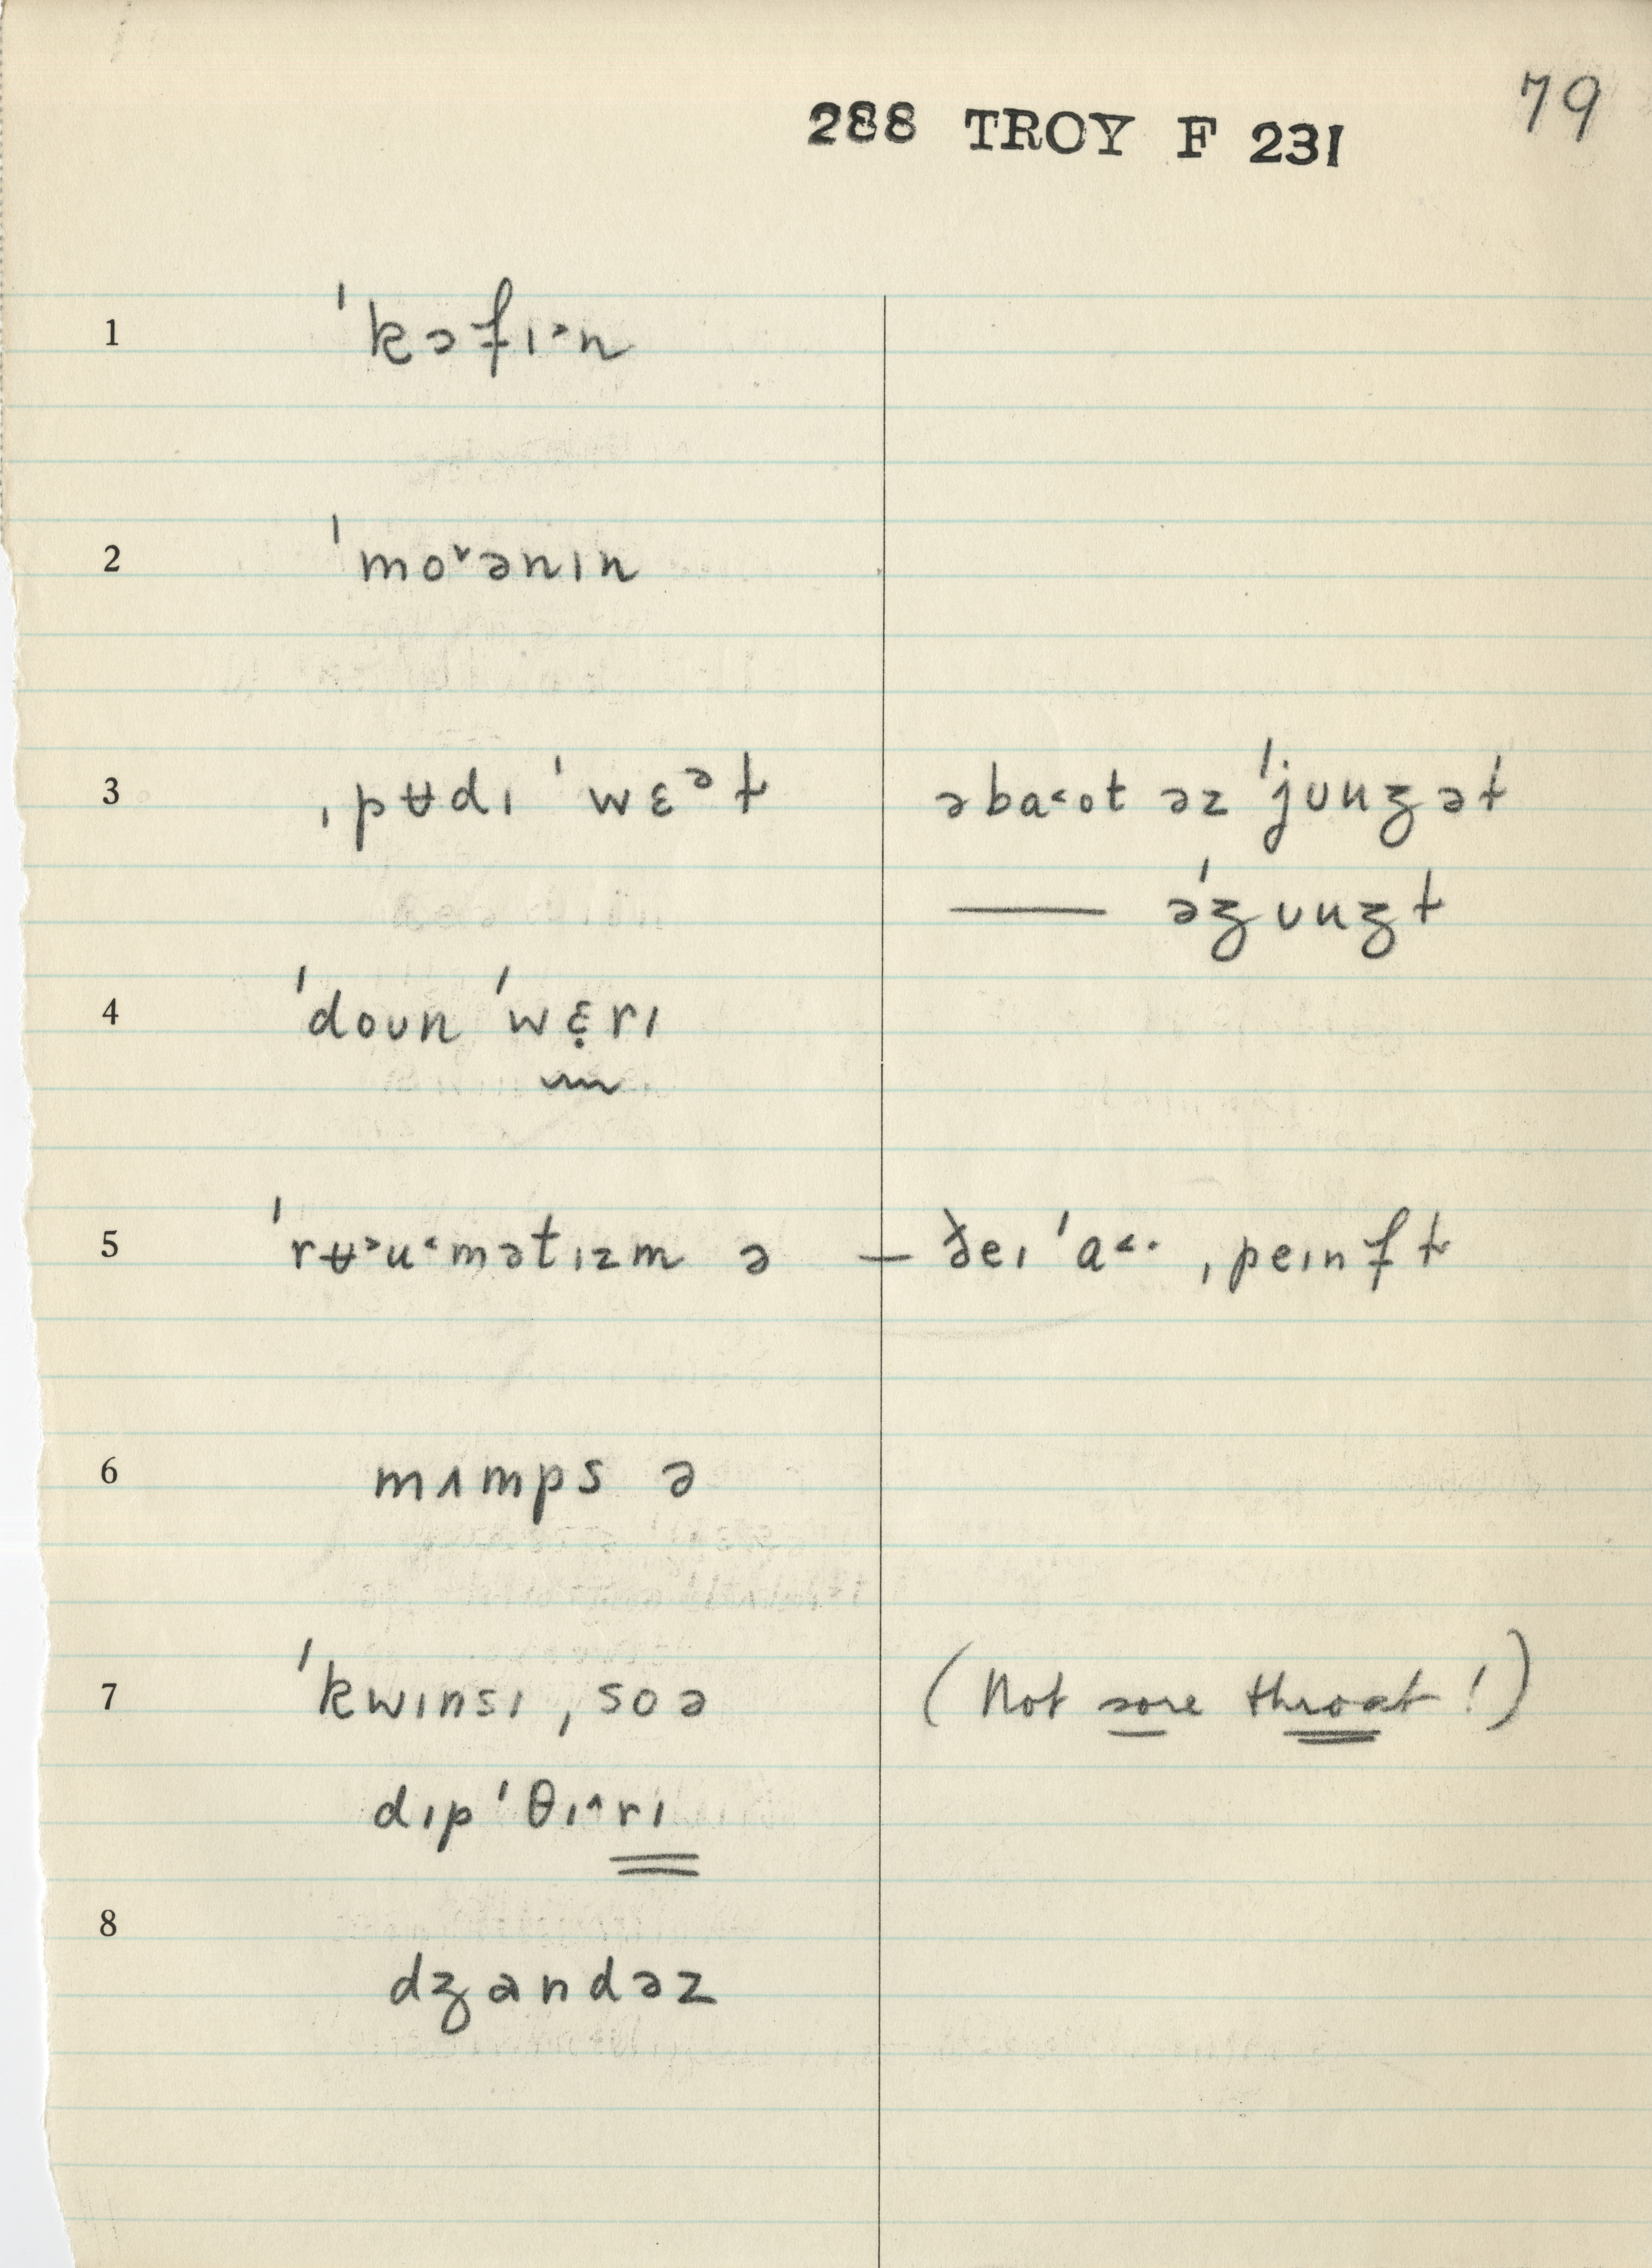 79
288 TROY F 231
1 ˈkɔfɪ˃n
2 ˈmo˅ənɪn
3 ˌpʉdɪ ˈwɛᵊɫ əba˂ot əz ˈjuuʒəɫ
— əˈʒuuʒɫ
4 ˈdoun ˈwɛ̣rɪ
5 ˈrʉ˃u˂mətɪzm ə — ðeɪ ˈa˂· ˌpeɪnfɫ
6 mʌmps ə
7 ˈkwɪnsɪ ˌsoə (Not sore throat!)
dɪpˈθɪ˄rɪ
8
dʒandəz